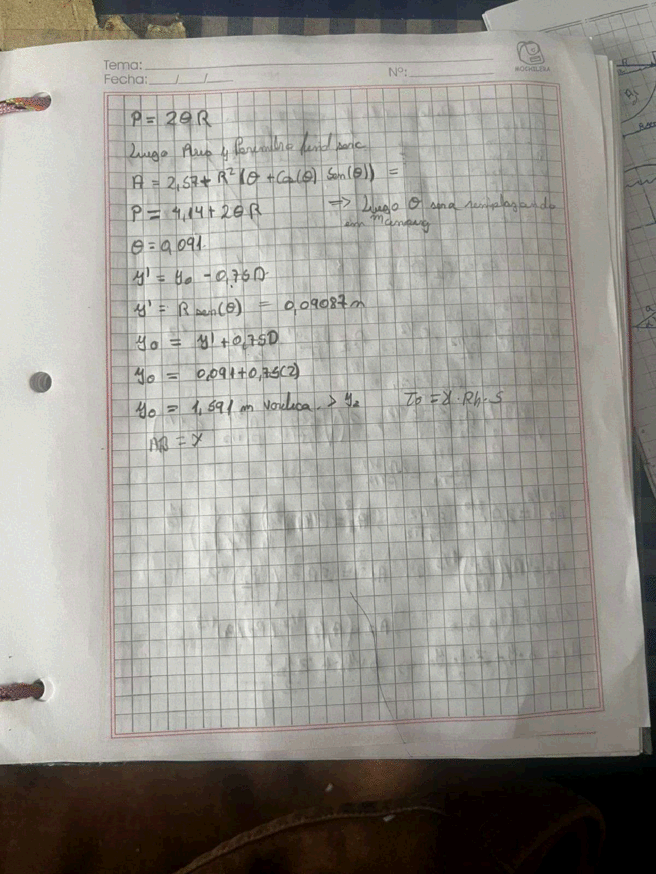 Tema:
Fecha: / /
Nº:
MOCHILERA
P = 2θR
Luego Area y Perimetro final sera
A = 2,57 + R² (θ + Cos(θ) Sen(θ)) =
P = 4,14 + 2θR ⇒ Luego θ sera remplazando
em Manning
θ = 0,091
y' = y₀ - 0,75D
y' = R sen(θ) = 0,09087m
y₀ = y' + 0,75D
y₀ = 0,091 + 0,75(2)
y₀ = 1,591 m > y₂ τ₀ = γ · Rh · S
AB = x